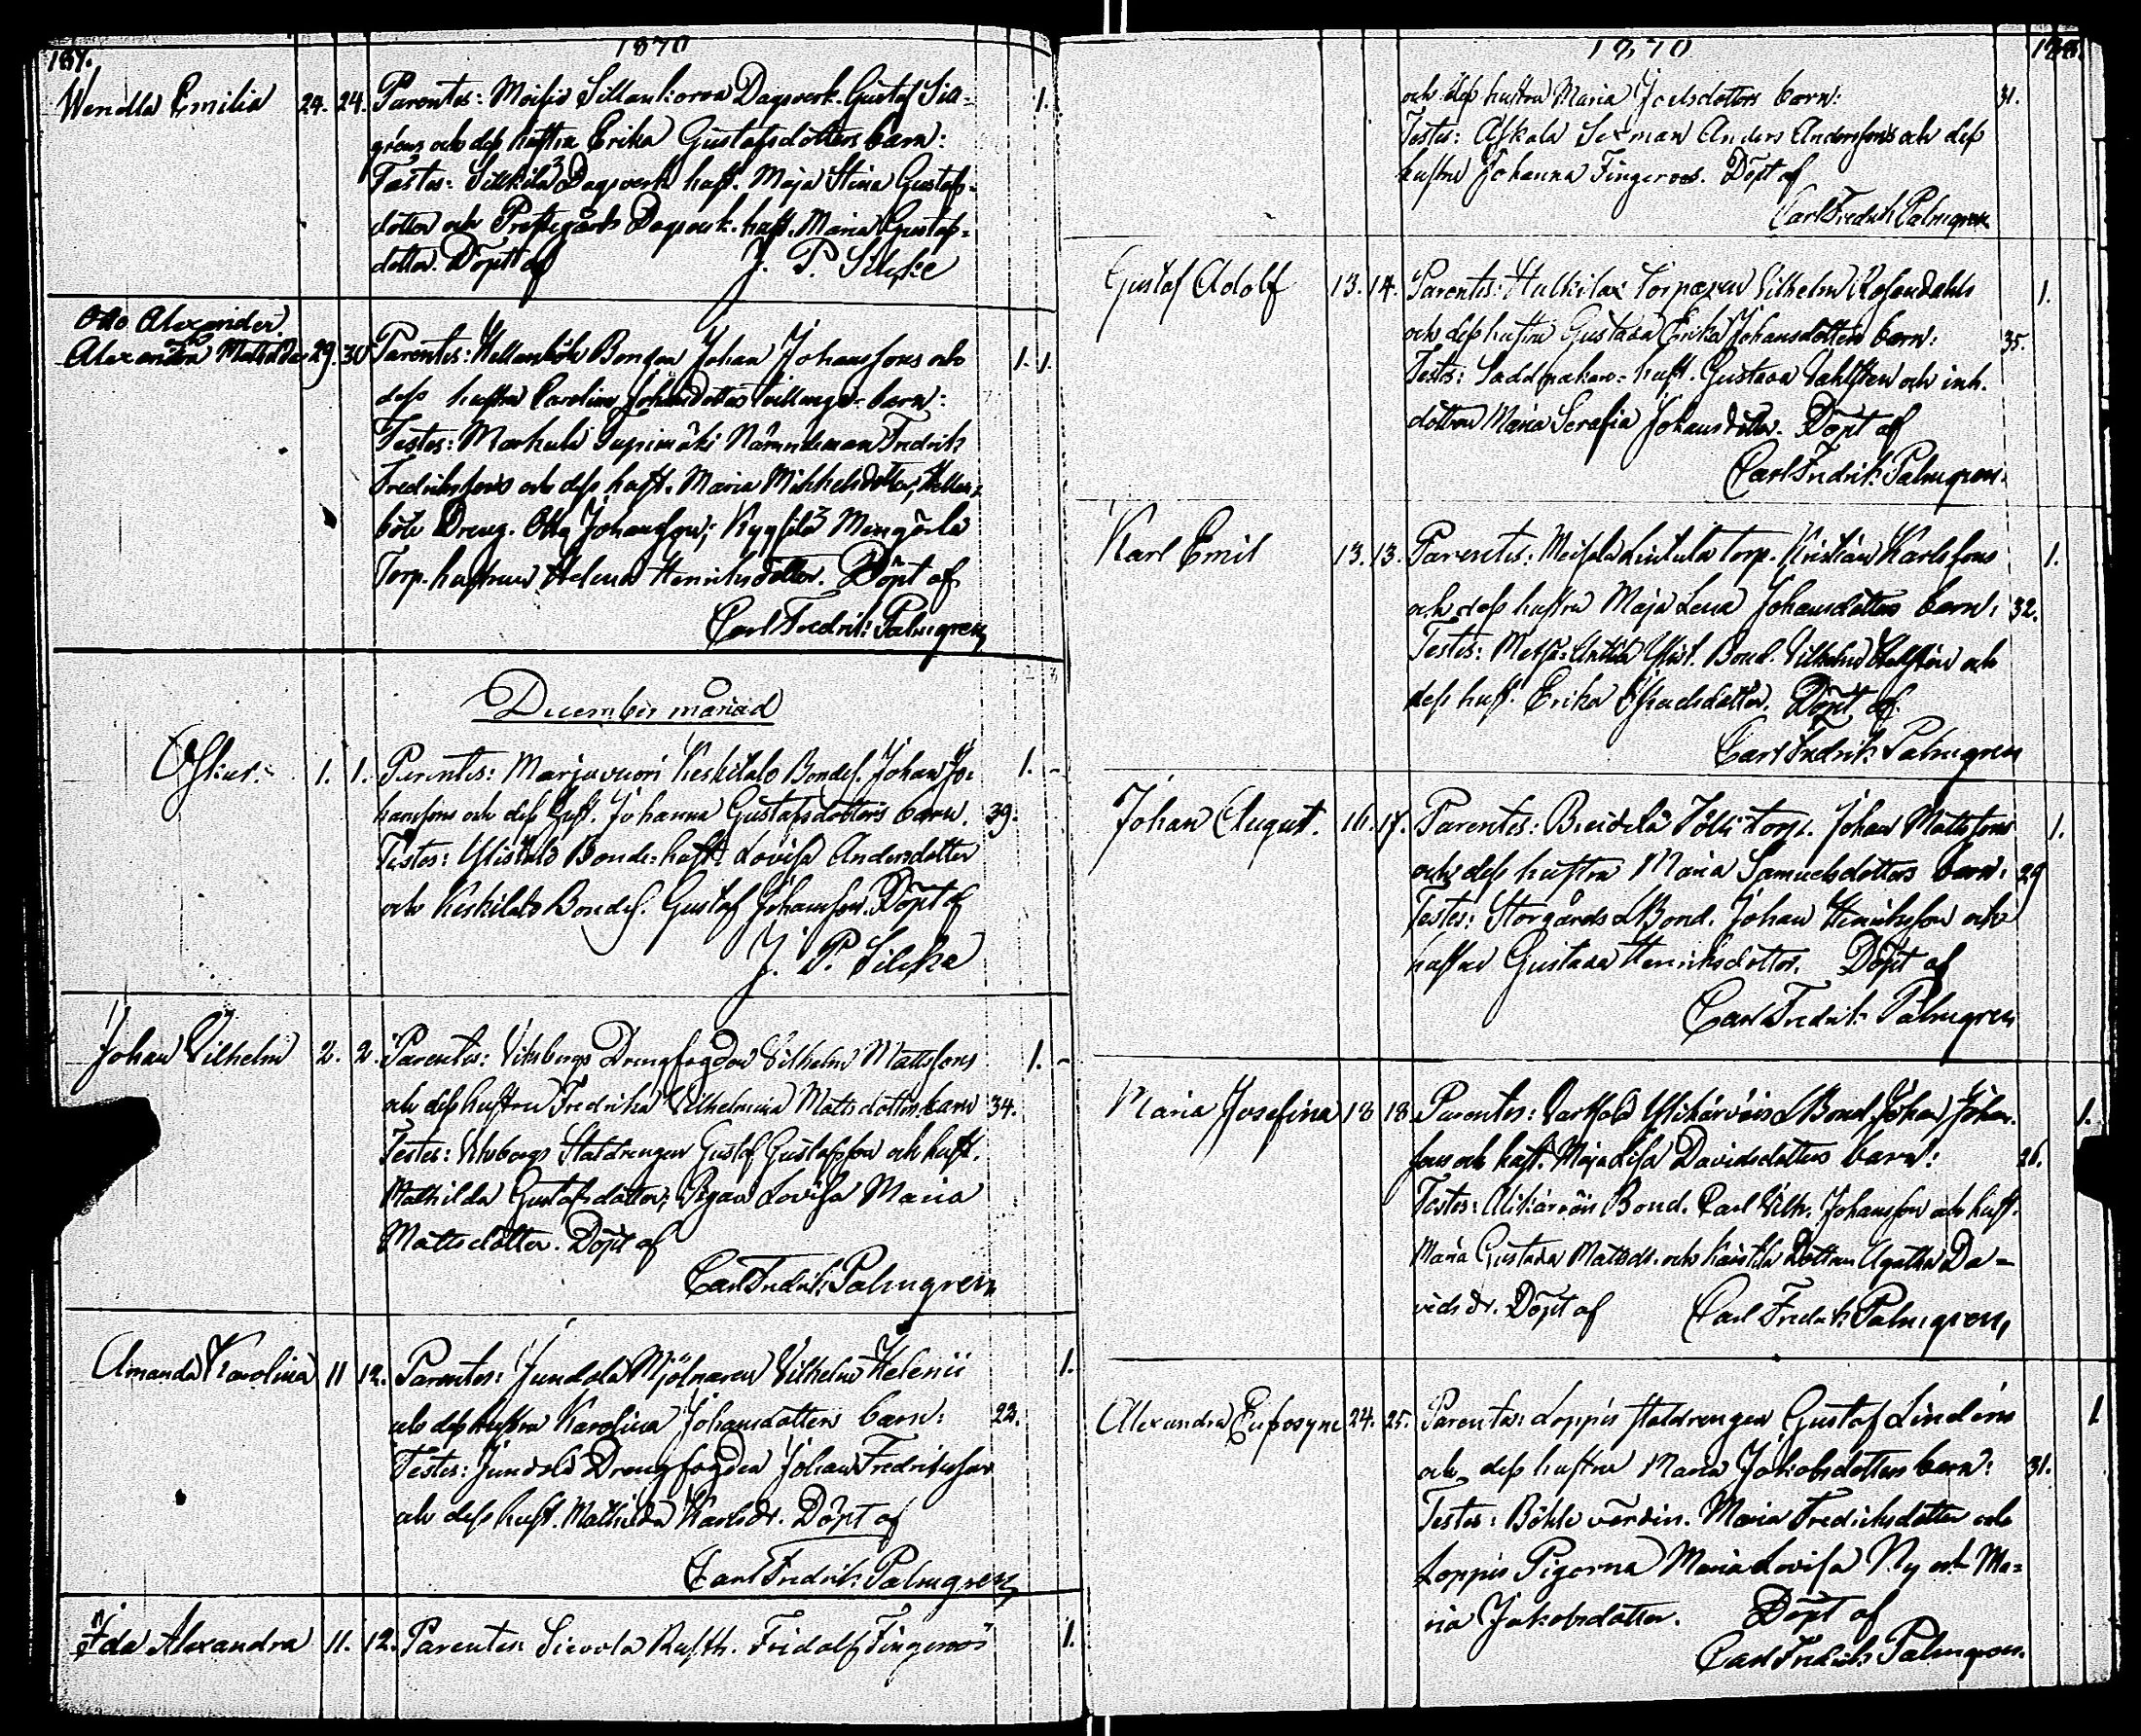 187.
1870
Wendla Emilia 24. 24. Parentes: Dagsverk. Gustaf Sia- 1.
gréns och dess hustru Erika Gustafsdotters barn:
Testes: Dagsverk hust. Maja Stina Gustafs-
dotter och Prestegårds Dagsverk. hust. Maria Gustafs-
dotter. Döpt af J. P. Silcke
Otto Alexander.
Alexandra Mathilda 29. 30 Parentes: Bonden Johan Johanssons och 1. 1.
dess hustru Carolina Johansdotters Tvillinge-barn:
Testes: Markula Nämndeman Fredrik
Fredrikssons och dess hust. Maria Mikkelsdotter,
böle Dreng. Otto Johansson;
Torp. hustrun Helena Henriksdotter. Döpt af
Carl Fredrik Palmgren
December månad
Oskar. 1. 1. Parentes: Marjavuori Keskitalo Bondes. Johan Jo- 1. -
hanssons och dess Hust. Johanna Gustafsdotters barn. 39.
Testes: Ylistalo Bonde-hust. Lovisa Andersdotter
och Keskitalo Bondes. Gustaf Johansson. Döpt af
J. P. Silcka
Johan Vilhelm 2. 2. Parentes: Viksbergs Drengfogden Vilhelm Mattssons 1. -
och dess hustru Fredrika Vilhelmina Mattsdotters barn 34.
Testes: Viksbergs Staldrengen Gustaf Gustafsson och hust.
Mathilda Gustafsdotter; Pigan Lovisa Maria
Mattsdotter. Döpt af
Carl Fredrik Palmgren
Amanda Karolina 11 12. Parentes: Jundola Mjölnaren Vilhelm Helenii 1.
och dess hustru Karolina Johansdotters barn: 23.
Testes: Jundola Drengfogden Johan Fredriksson
och dess hust. Mathilda Karlsdr. Döpt af
Carl Fredrik Palmgren
Ida Alexandra 11. 12. Parentes: Sievola Rusth. Fridolf Fingerroos 1.
1870
188.
och dess hustru Maria Joelsdotters barn: 31.
Testes: Askala Sexman Anders Anderssons och dess
hustru Johanna Fingeroos. Döpt af
Carl Fredrik Palmgren
Gustaf Adolf 13. 14. Parentes: Torparen Vilhelm Rosendahls 1.
och dess hustru Gustava Erika Johansdotters barn: 35.
Testes: Sadelmakare-hust. Gustava och inh.
dottren Maria Serafia Johansdotter. Döpt af
Carl Fredrik Palmgren.
Karl Emil 13. 13. Parentes: Meisala Lintula torp. Kristian Karlssons 1.
och dess hustru Maja Lena Johansdotters barn: 32.
Testes: Bond. Vilhelm och
dess hust. Erika Döpt af
Carl Fredrik Palmgren
Johan August. 16. 17. Parentes: Torp. Johan Mattssons 1.
och dess hustru Maria Samuelsdotters barn: 29
Testes: Storgårds LBond. Johan Henriksson och
hustru Gustava Henriksdotter. Döpt af
Carl Fredrik Palmgren
Maria Josefina 18 18. Parentes: LBond. Johan Johan- 1.
sons och hust. Maja Lisa Davidsdotters barn: 26.
Testes: Bond. Carl Vilh. Johansson och hust.
Maria Gustava Mattsdr. och Dottren Agatha Da-
vidsdr. Döpt af Carl Fredrik Palmgren,
Alexandra Eufrosyne 24. 25. Parentes: Loppis staldrengen Gustaf Lindéns 1.
och dess hustru Maria Jakobsdotters barn: 31.
Testes: Böhle värdin. Maria Fredriksdotter och
Loppis Pigorna Maria Lovisa Ny och Ma-
ria Jakobsdotter. Döpt af
Carl Fredrik Palmgren.